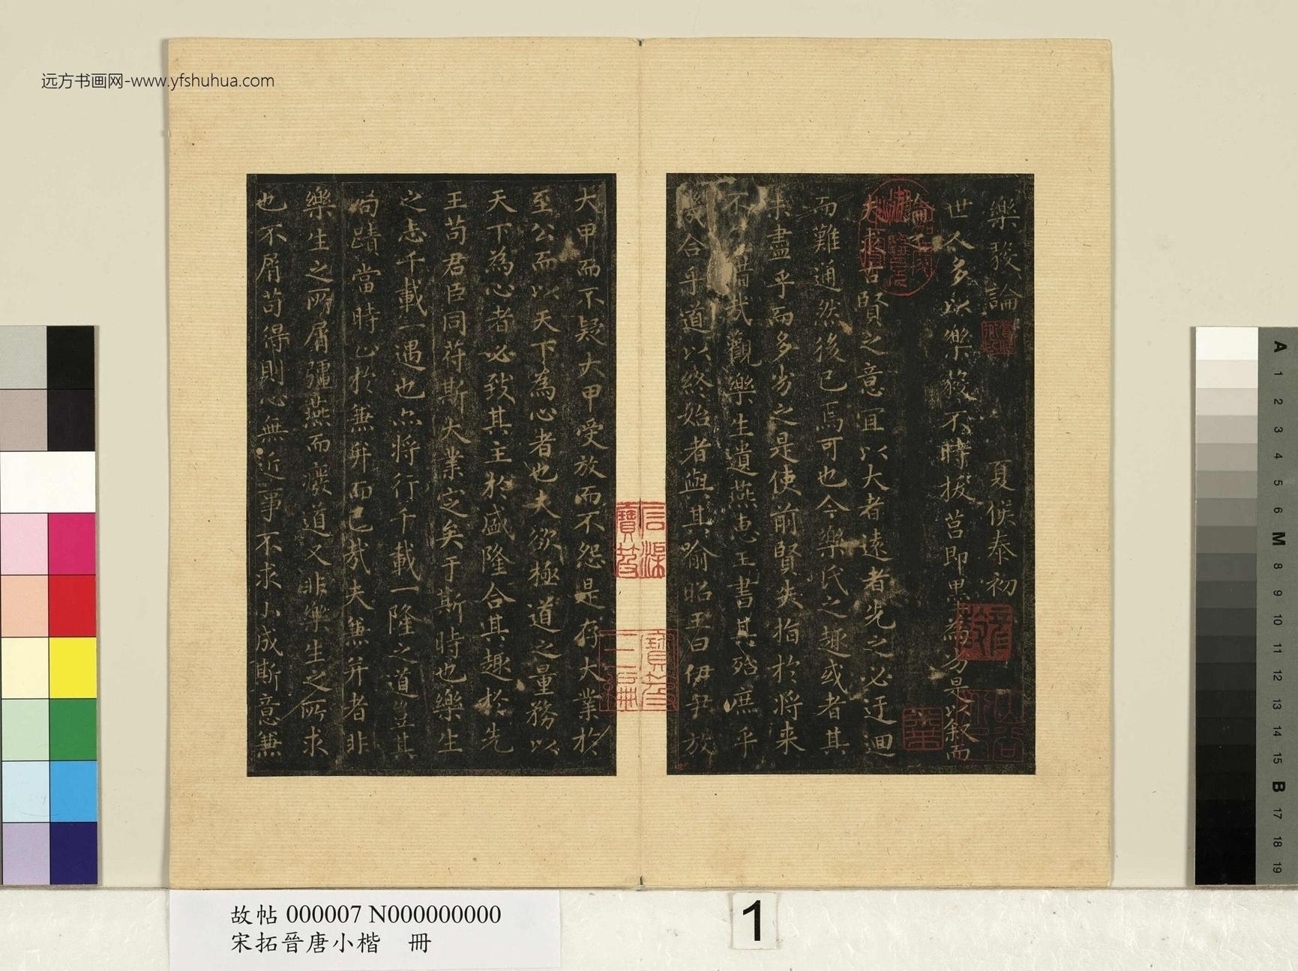 远方书画网-www.yfshuhua.com
樂毅論 夏侯泰初
世人多以樂毅不時拔莒即墨為劣是以叙而
論之
夫求古賢之意宜以大者遠者先之必迂迴
而難通然後已焉可也今樂氏之趣或者其
未盡乎而多劣之是使前賢失指於將来
不惜哉觀樂生遺燕惠王書其殆庶乎
合乎道以終始者與其喻昭王曰伊尹放
大甲而不疑大甲受放而不怨是存大業於
至公而以天下為心者也夫欲極道之量務以
天下為心者必致其主於盛隆合其趣於先
王苟君臣同苻斯大業定矣于斯時也樂生
之志千載一遇也亦將行千載一隆之道豈其
局蹟當時止於兼并而已哉夫兼并者非
樂生之所屑彊燕而廢道又非樂生之所求
也不屑苟得則心無近事不求小成斯意兼
故帖 000007 N000000000
宋拓晉唐小楷 冊
1
A 1 2 3 4 5 6 M 8 9 10 11 12 13 14 15 B 17 18 19